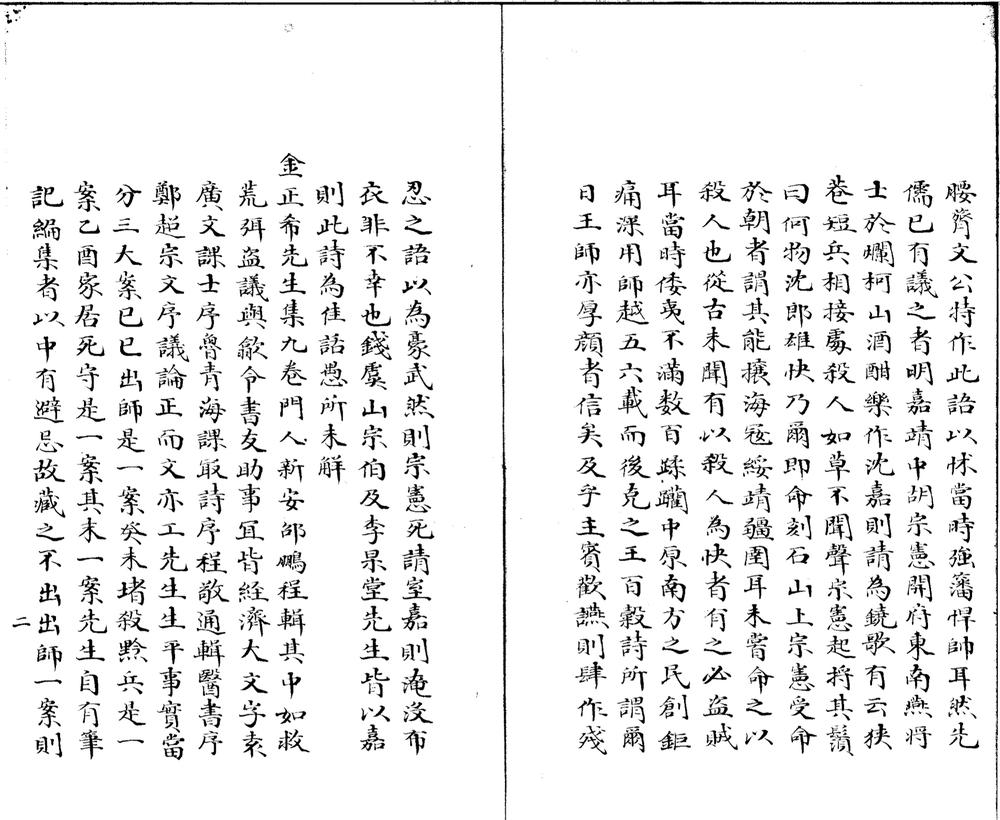 腰膂文公特作此語以怵當時強藩悍帥耳然先
儒已有議之者明嘉靖中胡宗憲開府東南燕將
士於爛柯山酒酣樂作沈嘉則請為鐃歌有云狹
巷短兵相接處殺人如草不聞聲宗憲起捋其鬚
曰何物沈郎雄快乃爾即命刻石山上宗憲受命
於朝者謂其能攘海寇綏靖疆圉耳未嘗命之以
殺人也從古未聞有以殺人為快者有之必盜賊
耳當時倭夷不滿数百蹂躪中原南方之民創鉅
痛深用師越五六載而後克之王百穀詩所謂爾
日王師亦厚顔者信矣及乎主賓歡讌則肆作殘
忍之語以為豪武然則宗憲死請室嘉則淹沒布
衣非不幸也錢虞山宗伯及李杲堂先生皆以嘉
則此詩為佳話愚所未解
金正希先生集九卷門人新安邵鵬程輯其中如救
荒弭盜議與歙令書友助事宜皆経濟大文字素
廣文課士序魯青海課最詩序程敬通輯醫書序
鄭超宗文序議論正而文亦工先生生平事實當
分三大案已巳出師是一案癸未堵殺黔兵是一
案乙酉家居死守是一案其末一案先生自有筆
記編集者以中有避忌故藏之不出出師一案則
二